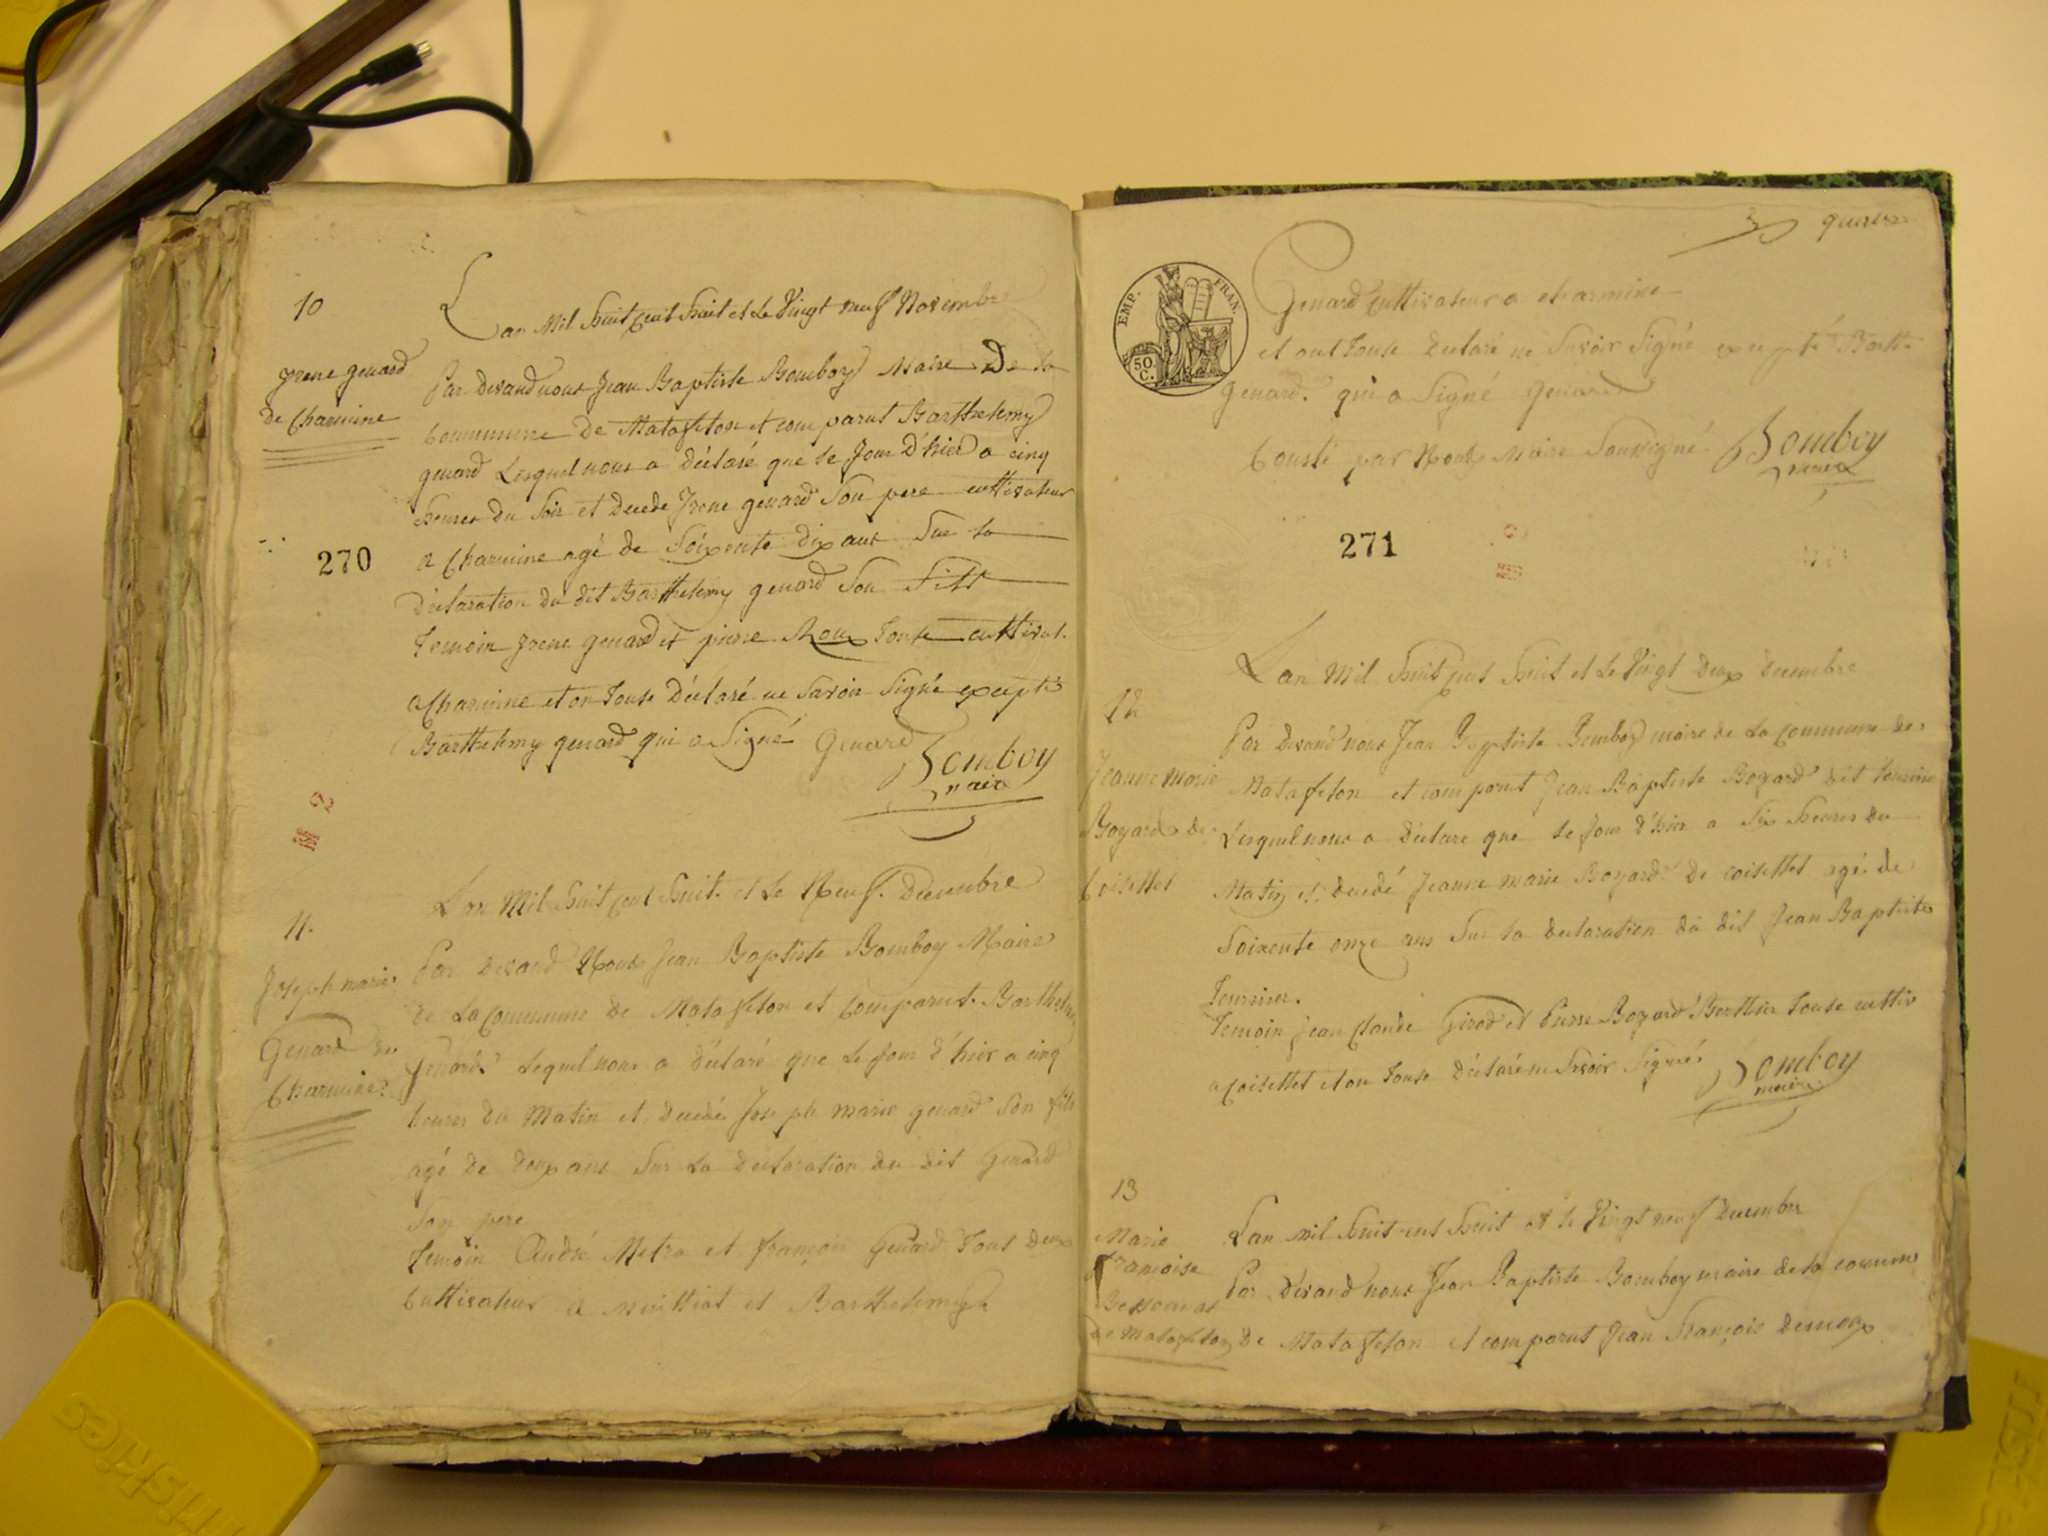 10
Lan Mil huit cent huit et Le Vingt neuf Novembre
yrene genard
de Charmine
Par devand nous Jean Baptiste Bomboy Maire De la
Commune de Matafelon et comparut Barthelemy
genard Lesquel nous a déclaré que le Jour D'hier a cinq
heures du Soir et Decede Irene genard Son pere cultivateur
a Charmine agé de Soixente dix ans Sue la
déclaration du dit Barthelemy genard Son Fils
Temoin yrene genard et pierre Roux Touse cultivat.
a Charmine et on Touse Déclaré ne Savoir Signé excepté
Barthelemy genard qui a Signé Genard
Bomboy
maire
270
11.
Lan Mil huit cent huit. et Le Neuf. Decembre
Joseph marie
Genard de
Charmine
Par devand Nous Jean Baptiste Bomboy Maire
de La Commune de Matafelon et Comparut. Barthelemy
genard. Lequel nous a déclaré que Le Jour d'hier a cinq
heures du Matin et decedé Joseph marie genard Son fils
agé de deux ans Sur La declaration du dit Genard
Son pere
Temoin André Metra et françois Genard Tous deux
Cultivateur a et Barthelemy
Genard Cultivateur a charmine
et ont Touse Declaré ne Savoir Signé excepté Barth.
Genard. qui a Signé Genard
par Nous Maire Soussigné. Bomboy
maire
EMP. FRAN.
50.
C.
271
12
Lan Mil huit cent huit et Le Vingt Deux decembre
Jeanne marie
Bozard de
Coisellet
Par Devand nous Jean Baptiste Bomboy maire de La Commune de
Matafelon et comparut Jean Baptiste Bozard dit
Lesquel nous a déclare que le Jour d'hier a Six heures du
Matin et decedé Jeanne marie Bozard de coisellet agé de
Soixente onze ans Sur la declaration du dit Jean Baptiste
Temoin Jean Claude Girod et Pierre Bozard Berthier Touse cultiv
a Coisellet et on Touse Déclaré ne Savoir Signé. Bomboy
maire
13
Lan mil huit cent huit et le Vingt neuf decembre
Marie
francoise
de Matafelon
Par devand nous Jean Baptiste Bomboy maire de la commune
de Matafelon et comparut Jean François